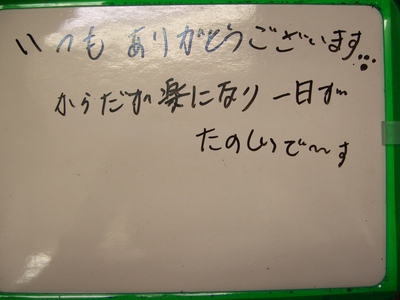 いつもありがとうございます...
からだが楽になり 一日が
たのしいで〜す